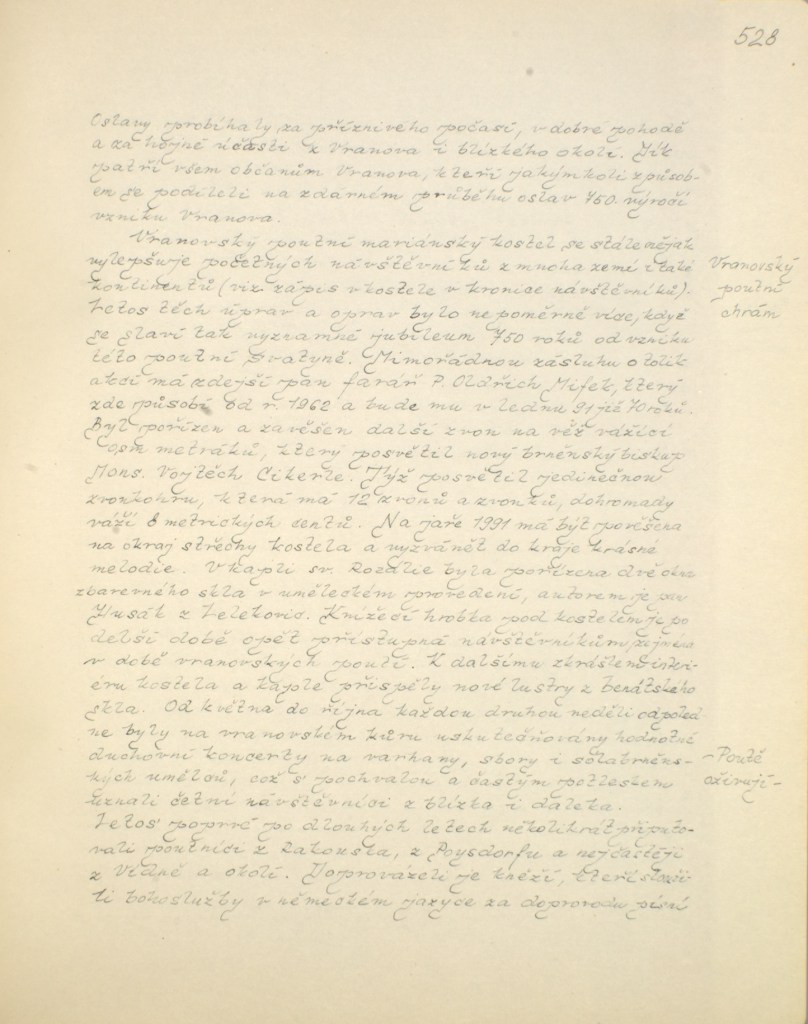 528
Oslavy probíhaly za příznivého počasí, v dobré pohodě
a za hojné účasti z Vranova i blízkého okolí. Dík
patří všem občanům Vranova, kteří jakýmkoli způsob-
em se podíleli na zdárném průběhu oslav 750. výročí
vzniku Vranova.
Vranovský poutní mariánský kostel se stále nějak
vylepšuje početných návštěvníků z mnoha zemí i také
kontinentů (viz. zápis v kostele v kronice návštěvníků).
Letos těch úprav a oprav bylo nepoměrně víc, když
se slaví tak významné jubileum 750 roků od vzniku
této poutní svatyně. Mimořádnou zásluhu o tolik
akcí má zdejší pan farář P. Oldřich Mifek, který
zde působí od r. 1962 a bude mu v lednu 91 již 70 roků.
Byl pořízen a zavěšen další zvon na věž vážící
osm metráků, který posvětil nový brněnský biskup
Mons. Vojtěch Cikrle. Týž posvětil jedinečnou
zvonkohru, která má 12 zvonů a zvonků, dohromady
váží 8 metrických centů. Na jaře 1991 má být pověšena
na okraj střechy kostela a vyzvánět do kraje krásné
melodie. V kapli sv. Rozálie byla pořízena dvě okna
z barevného skla v uměleckém provedení, autorem je pan
Husák z Lelekovic. Knížecí hrobka pod kostelem je po
delší době opět přístupná návštěvníkům, zejména
v době vranovských poutí. K dalšímu zkrášlení interi-
éru kostela a kaple přispěly nové lustry z benátského
skla. Od května do října každou druhou neděli odpoled
ne byly na vranovském kůru uskutečňovány hodnotné
duchovní koncerty na varhany, sbory i sóla brněns-
kých umělců, což s pochvalou a častým potleskem
uznali četní návštěvníci z blízka i daleka.
Letos poprvé po dlouhých letech několikrát připuto-
vali poutníci z Rakouska, z Poysdorfu a nejčastěji
z Vídně a okolí. Doprovázeli je kněží, kteří slouži-
li bohoslužby v německém jazyce za doprovodu písní
Vranovský
poutní
chrám
- Poutě
ožívují -